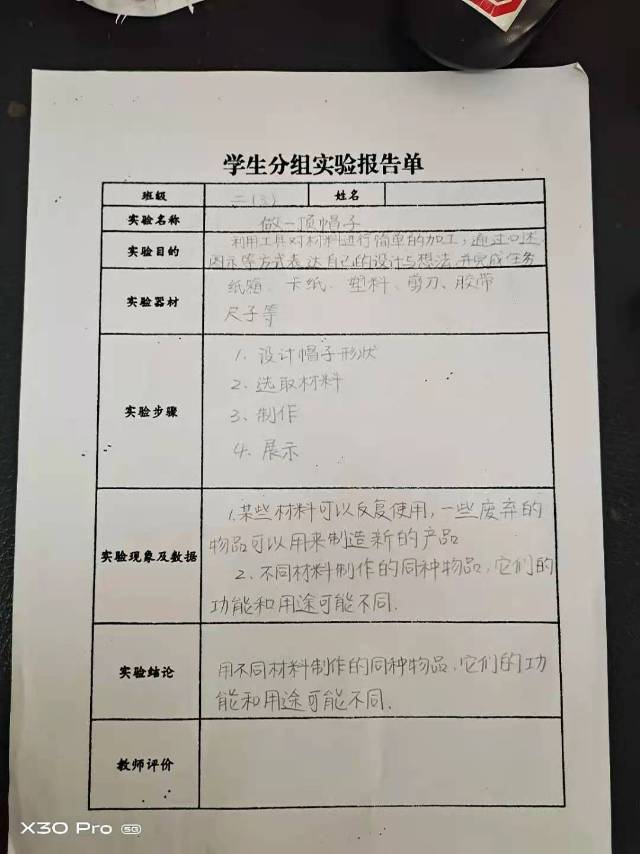 学生分组实验报告单
班级 二(3) 姓名
实验名称 做一顶帽子
实验目的 利用工具对材料进行简单的加工,通过口述
图示等方式表达自己的设计与想法,并完成任务
实验器材 纸箱、卡纸、塑料、剪刀、胶带
尺子等
实验步骤
1、设计帽子形状
2、选取材料
3、制作
4、展示
实验现象及数据
1.某些材料可以反复使用,一些废弃的
物品可以用来制造新的产品
2、不同材料制作的同种物品,它们的
功能和用途可能不同.
实验结论
用不同材料制作的同种物品,它们的功
能和用途可能不同.
教师评价
X30 Pro 5G